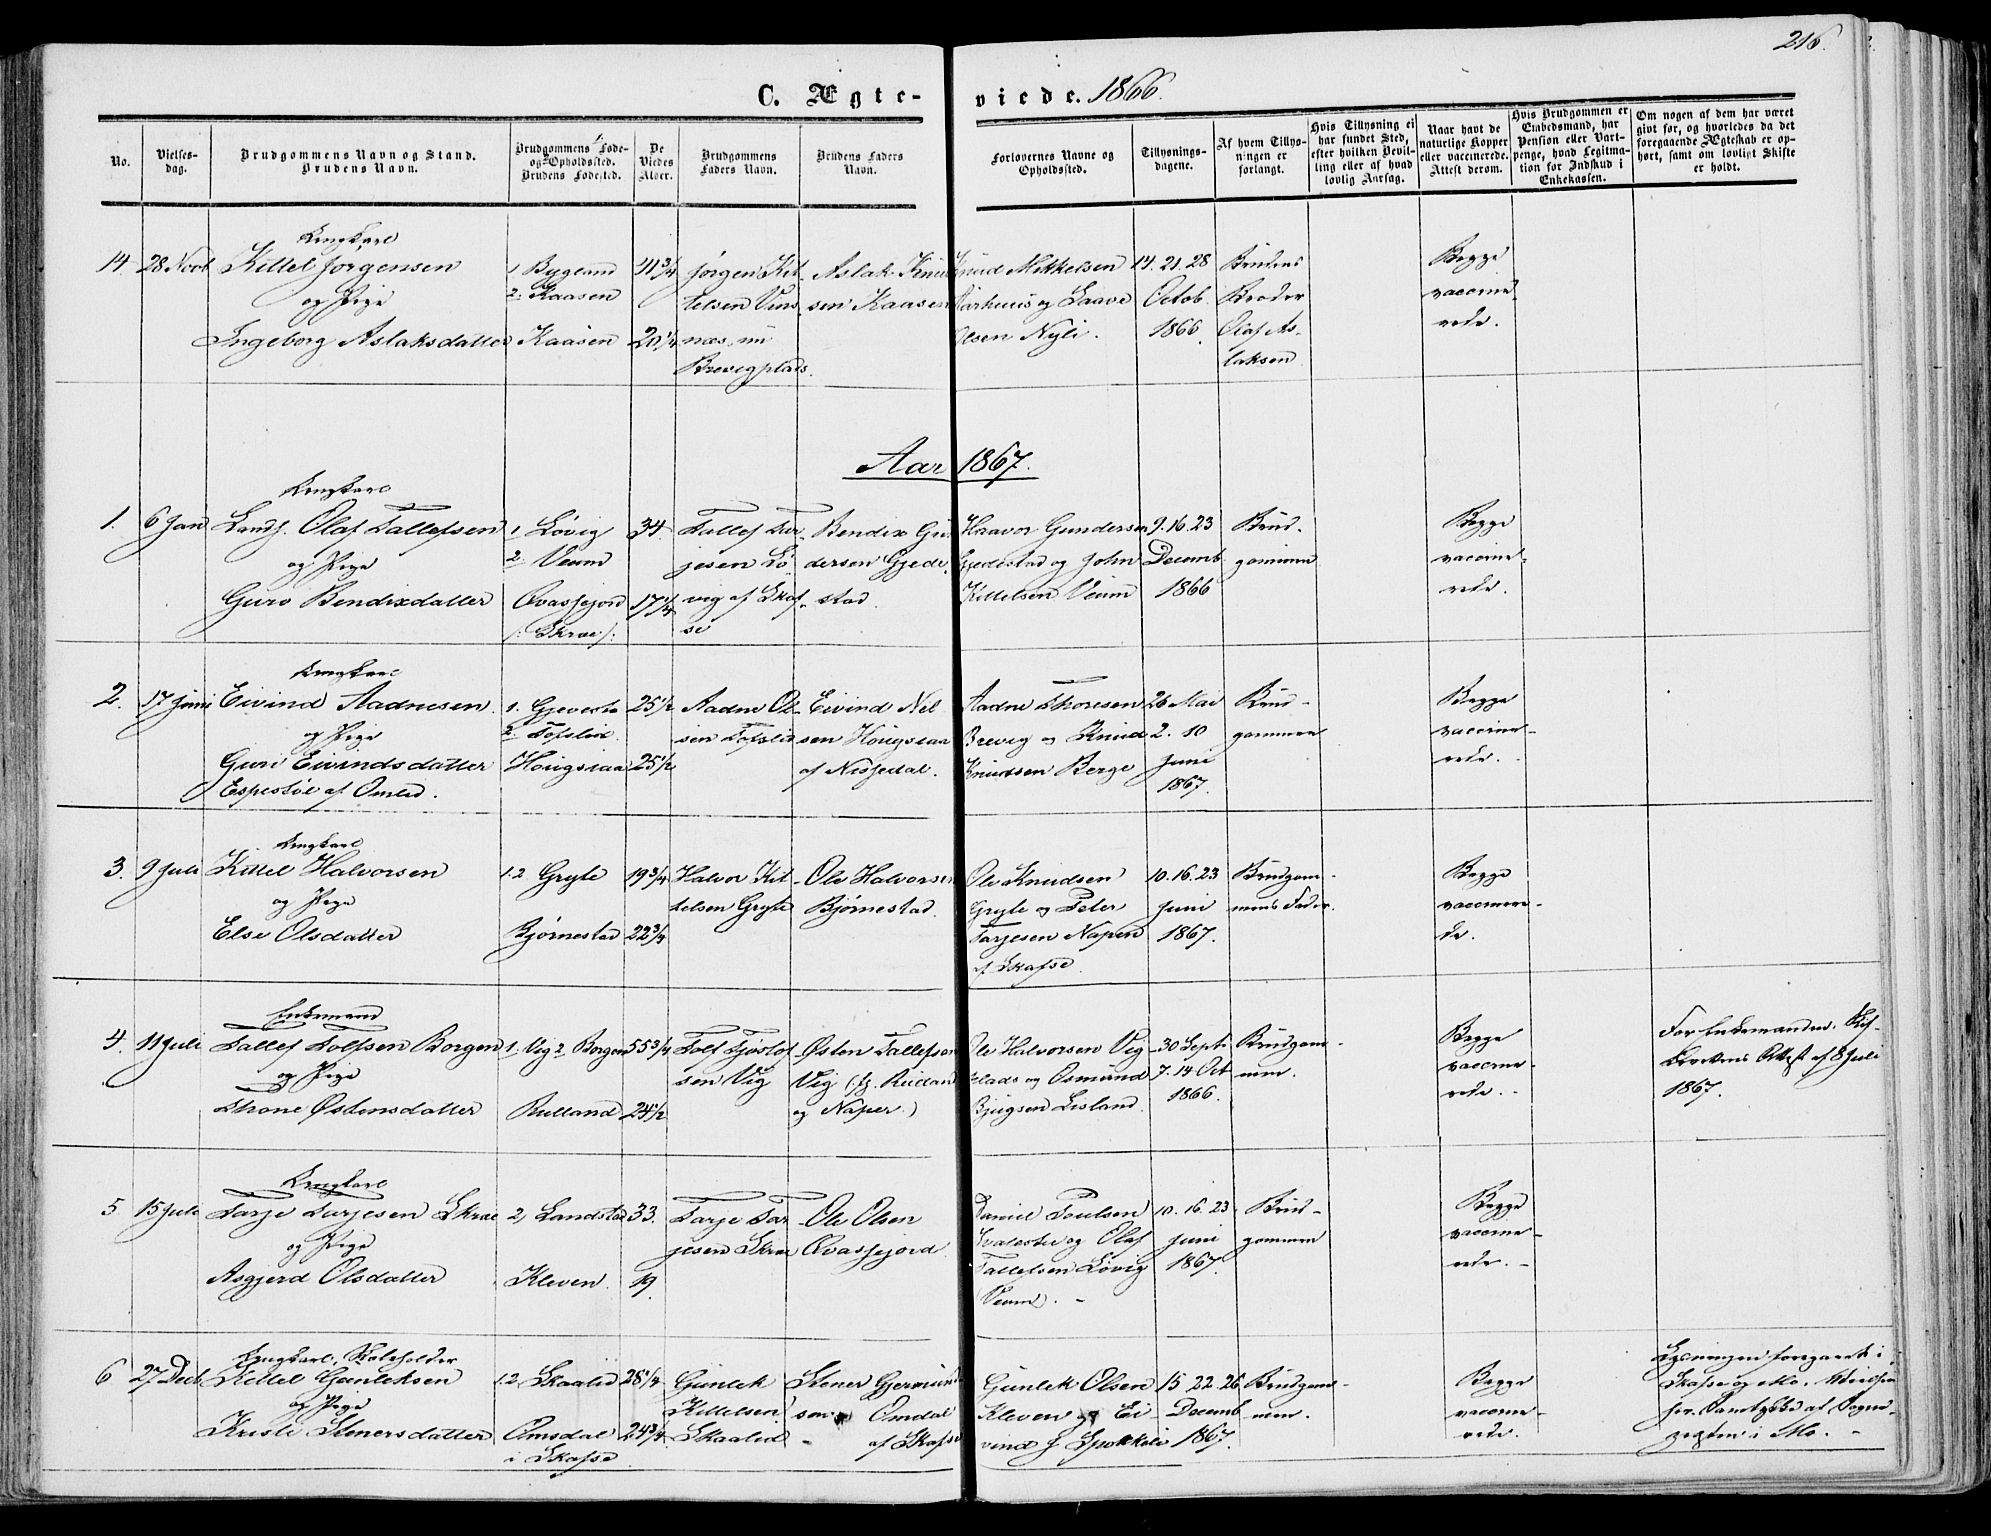 216.
C. Ægte-viede. 1866.
No.
Vielses-
dag.
Brudgommens Navn og Stand.
Brudens Navn.
Brudgommens Føde-
og Opholdssted.
Brudens Fødested.
De
Viedes
Alder.
Brudgommens
Faders Navn.
Brudens Faders
Navn.
Forlovernes Navne og
Opholdssted.
Tillysnings-
dagene.
Af hvem Tillys-
ningen er
forlangt.
Hvis Tillysning ei
har fundet Sted,
efter hvilken Bevil-
ling eller af hvad
lovlig Aarsag.
Naar havt de
naturlige Kopper
eller vaccinerede.
Attest derom.
Hvis Brudgommen er
Embedsmand, har
Pension eller Vart-
penge, hvad Legitima-
tion for Indskud i
Enkekassen.
Om nogen af dem har været
gift før, og hvorledes da det
foregaaende Ægteskab er op-
hørt, samt om lovligt Skifte
er holdt.
14
28 Novb
Ungkarl
Kittel Jørgensen
og Pige
Ingeborg Aslaksdatter
1. Bygland
2. Kaasen
Kaasen
41 3/4
20 1/4
Jørgen Kit-
telsen Vins-
næs nu
Brevigplads.
Aslak Knud
sen Kaasen
Knud Mikkelsen
Aarhuus og Saave
Olsen Nyli.
14. 21. 28
Octob.
1866.
Brudens
Broder
Olaf As-
laksen
Begge
vaccine-
rede.
Aar 1867.
1.
6 Jan
Ungkarl
Landh. Olaf Tallefsen
og Pige
Guro Bendixdatter
1. Løvig
2. Veum
Qvasfjord
/: Skrae /:
34
17 1/4
Tallef Tar-
jesen Lø-
vig af Skaf-
se
Bendix Gun
dersen Gjede-
stad.
Haavor Gundersen
Gjedestad og John
Kittelsen Veum
9. 16. 23
Decemb
1866
Brud-
gommen
Begge
vaccine-
rede.
2.
17 Juni
Ungkarl
Eivind Aadnesen.
og Pige
Guri Eivindsdatter
Espestøl af Omlid.
1. Gjevesta
2. Tofslie
Hougsiaa
25 1/2
25 1/2
Aadne Ol-
sen Tofslie
Eivind Nel
sen Hougsiaa
af Nissedal.
Aadne Thoresen
Brevig og Knud
Knudsen Berge
26 Mai
2. 10
Juni
1867.
Brud-
gommen
Begge
vaccine-
rede.
3.
9 Juli
Ungkarl
Kittel Halvorsen
og Pige
Else Olsdatter
1.2 Gryte
Bjørnestad
19 3/4
22 3/4
Halvor Kit-
telsen Gryte
Ole Halvorsen
Bjørnestad.
Ole Knudsen
Gryte og Peter
Tarjesen Napen
af Skafse.
10. 16. 23
Juni
1867.
Brudgom-
mens Fader.
Begge
vaccinere-
de.
4.
11 Juli
Enkemand
Tallef Tolfsen Borgen
og Pige
Thone Østensdatter
1. Vig 2. Borgen
Rulland
55 3/4
24 1/2
Tolf Tjøstof
sen Vig
Østen Tallefsen
Vig (f. Ruland
og Naper.)
Ole Halvorsen Vig-
plads og Osmund
Bjugsen Lisland.
30 Sept
7. 14 Oct
1866.
Brudgom-
men.
Begge
vaccine-
rede.
For Enkemanden. Skif-
terettens Attest af 8 Juli
1867.
5
15 Juli
Ungkarl
Tarje Tarjesen Skrae
og Pige
Asgjerd Olsdatter
2, Landstad
Kleven
33.
19
Tarje Tar-
jesen Skrae
Ole Olsen
Qvasfjord
Daniel Poulsen
Kvalestu og Olaf
Tallefsen Løvig
(Veum).
10. 16. 23
Juni
1867.
Brud-
gommen
Begge
vaccine-
rede.
6
27 Decb
Ungkarl. Skoleholder
Kittel Gunleksen
og Pige
Kristi Stenersdatter
1.2 Skaalid
Omsdal
i Skafse
28 1/4
24 3/4
Gunlek
Kittelsen
Skaalid
Stener Gjermund
sen Omdal
af Skafse
Gunlek Olsen
Kleven og Ei-
vind J Spokkeli
15 22 26
Decemb
1867.
Brudgom-
men.
Begge
vaccine-
rede.
Lysningen foregaaet i
Skafse og Mo.
af Sogne-
præsten i Mo.